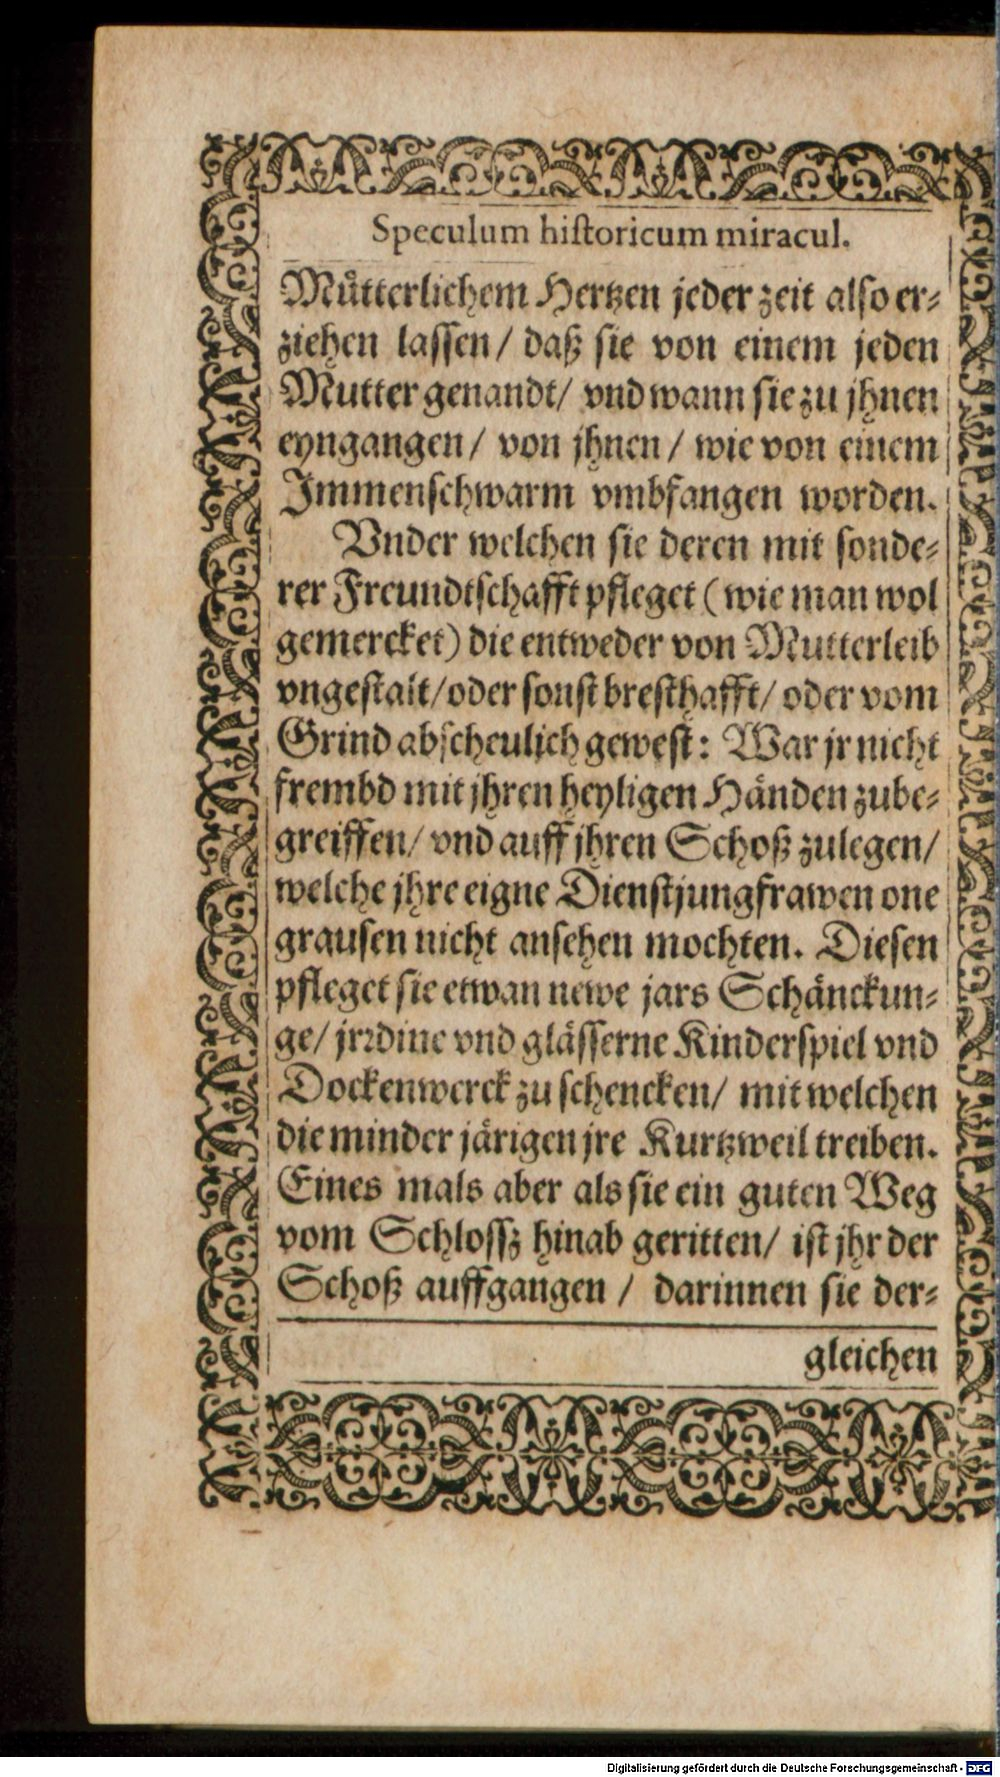 Speculum hiſtoricum miracul.
Muͤtterlichem Hertzen jeder zeit alſo er⸗
ziehen laſſen/ daß ſie von einem jeden
Mutter genandt/ vnd wann ſie zu jhnen
eyngangen/ von jhnen/ wie von einem
Jmmenſchwarm vmbfangen worden.
Vnder welchen ſie deren mit ſonde⸗
rer Freundtſchafft pfleget (wie man wol
gemercket) die entweder von Mutterleib
vngeſtalt/ oder ſonſt breſthafft/ oder vom
Grind abſcheulich geweſt: War jr nicht
frembd mit jhren heyligen Haͤnden zube⸗
greiffen/ vnd auff jhren Schoß zulegen/
welche jhre eigne Dienſtjungfrawen one
grauſen nicht anſehen mochten. Dieſen
pfleget ſie etwan newe jars Schaͤnckun⸗
ge/ jrꝛdine vnd glaͤſſerne Kinderſpiel vnd
Dockenwerck zu ſchencken/ mit welchen
die minder jaͤrigen jre Kurtzweil treiben.
Eines mals aber als ſie ein guten Weg
vom Schloſſz hinab geritten/ iſt jhr der
Schoß auffgangen / darinnen ſie der⸗
gleichen
Digitalisierung gefördert durch die Deutsche Forschungsgemeinschaft - DFG